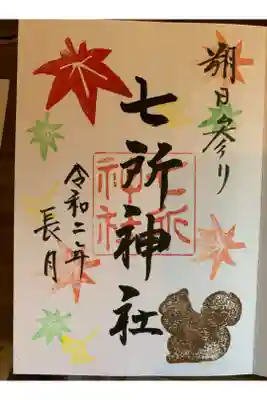 朔日参り
七所神社
七所神社
令和二年
長月